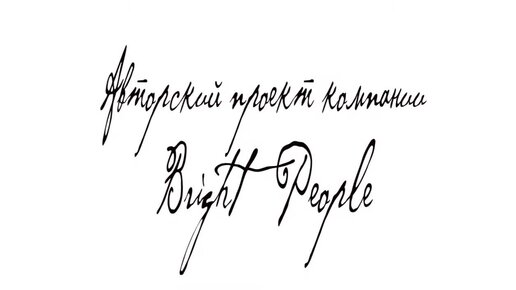 Авторский проект компании
Bright People